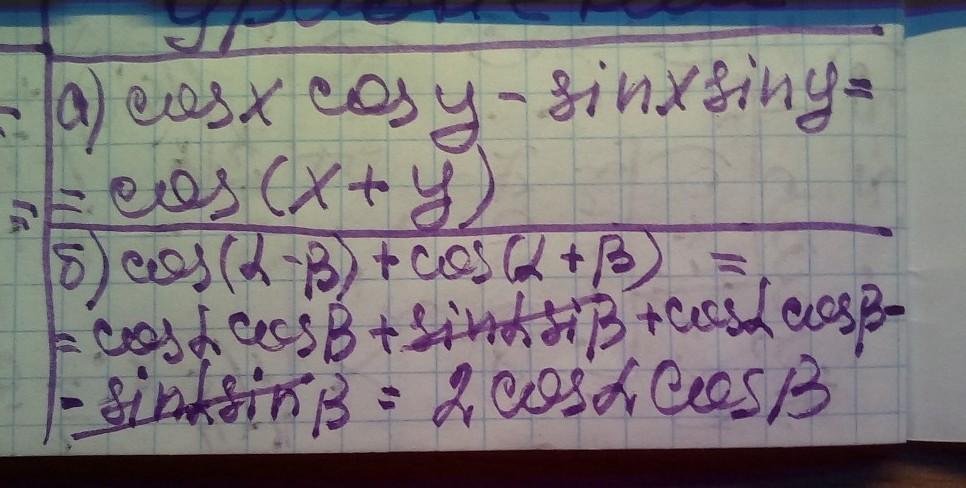 а) cosx cosy - sinxsiny=
= cos(x+y)
б) cos(α-β)+cos(α+β) =
= cosα cosβ + sinα siβ + cosα cosβ-
- sinα sinβ = 2 cosα cosβ